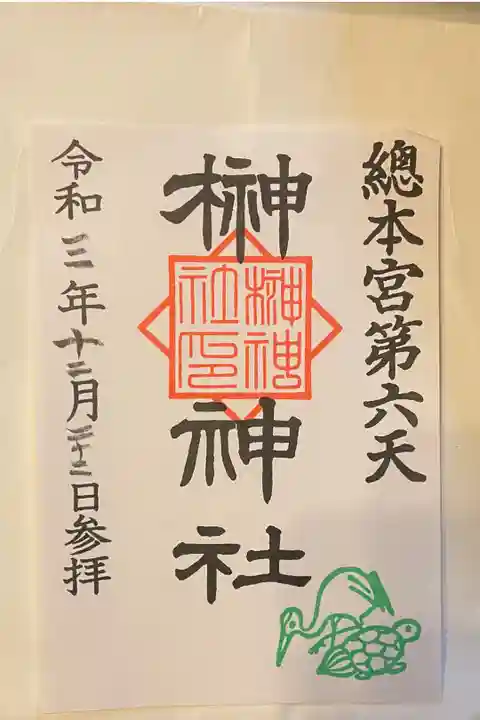 總本宮第六天
榊神社
榊神
社印
令和三年十二月二十二日参拝